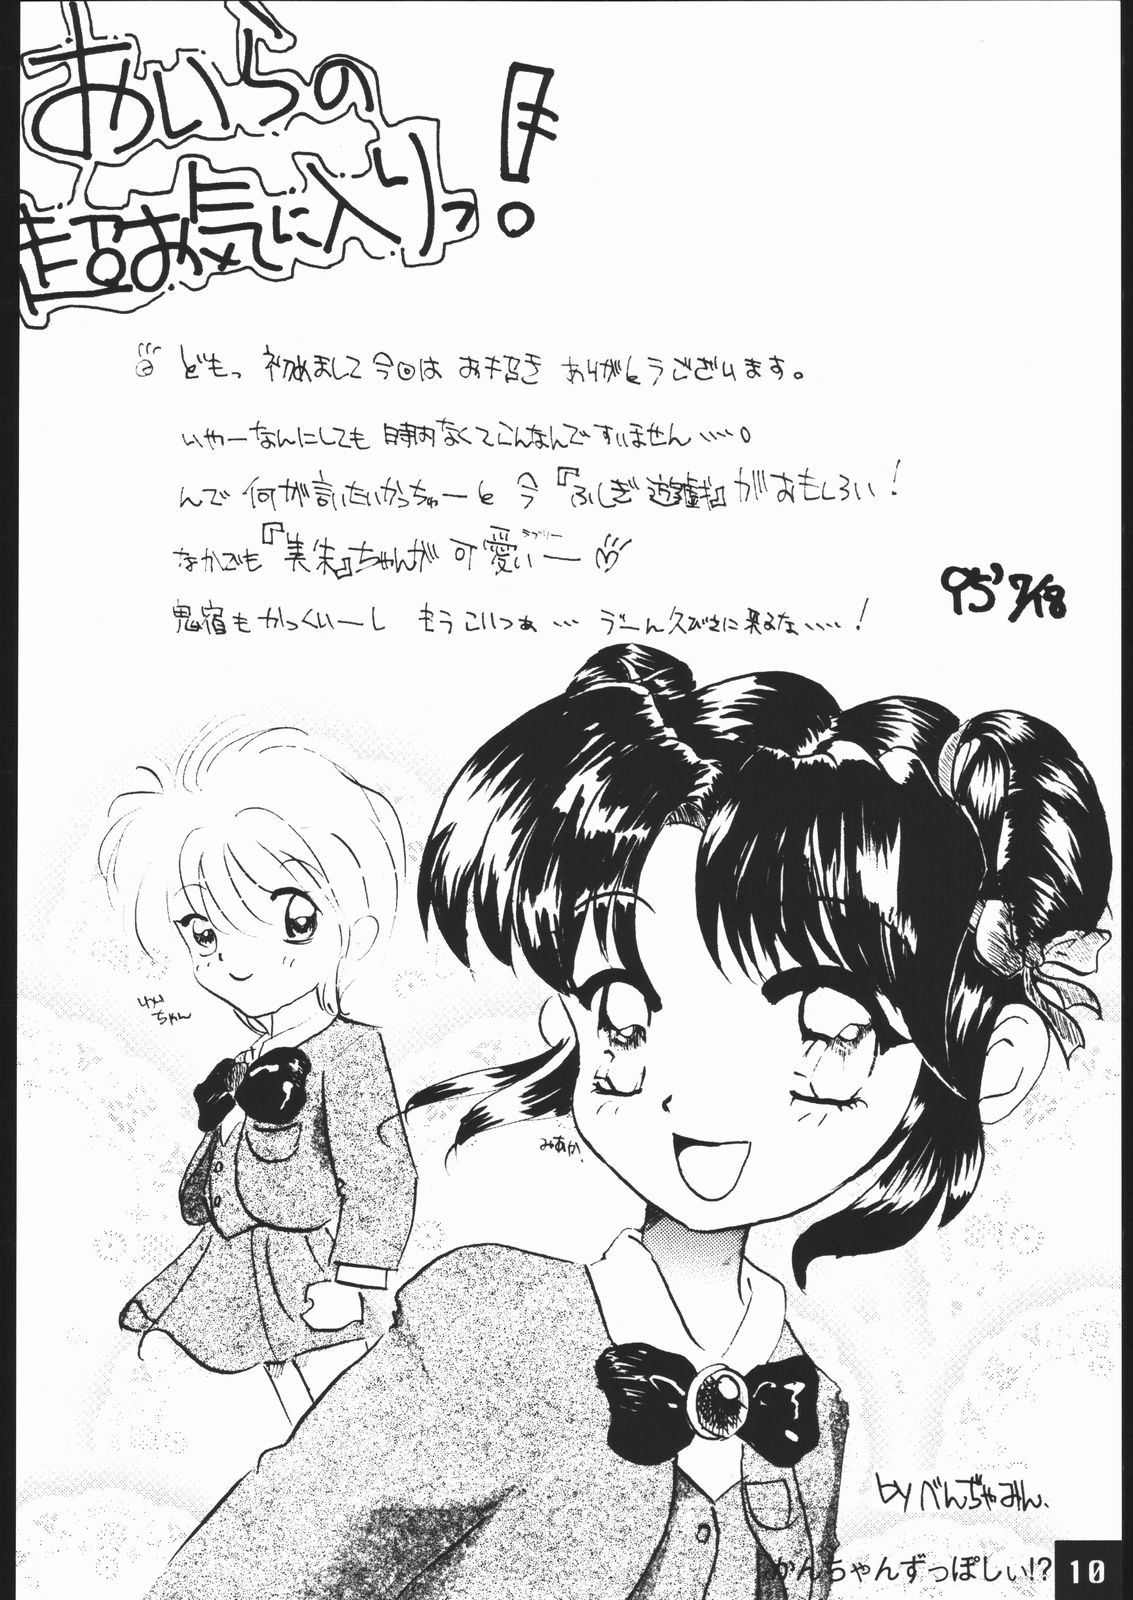 おいらの
超お気に入りっ!
どもっ 初めまして今回は お招き ありがとうございます。
いやーなんにしても 時間なくてこんなんですいません……。
んで 何が言いたいかっちゅーと 今『ふしぎ遊戯』がおもしろい!
なかでも『美朱』ちゃんが可愛いー
ラブリー
鬼宿もかっくいーし もうこいつぁ… うーん久びさに来るな……!
95' 7/18
ゆい
ちゃん
みあか
by べんぢゃみん.
かんちゃんずっぽしぃ!?
10